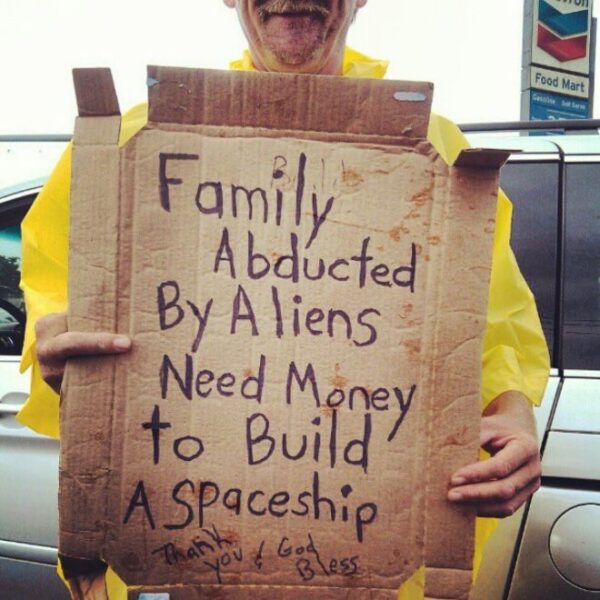 Food Mart
Family
Abducted
By Aliens
Need Money
to Build
A Spaceship
Thank
you & God
Bless